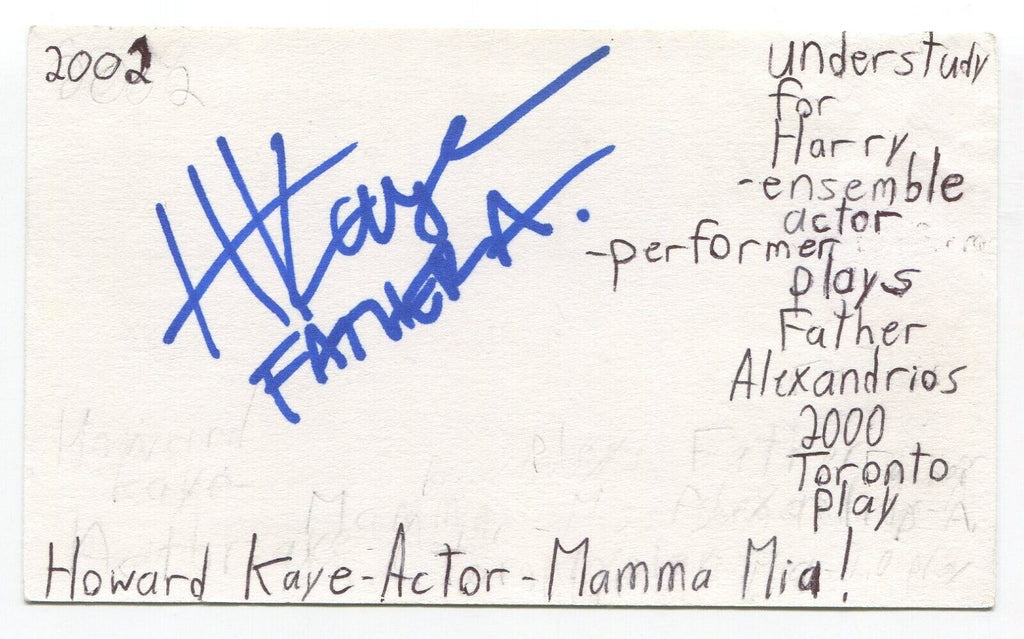 2002
HKaye
FATHER A.
understudy
for
Harry
-ensemble
actor
-performer
plays
Father
Alexandrios
2000
Toronto
play
Howard Kaye-Actor-Mamma Mia!